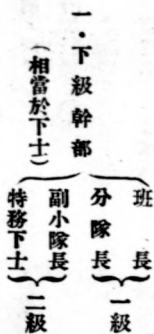 一．下級幹部
（相當於下士）
班長
分隊長
一級
副小隊長
特務下士
二級